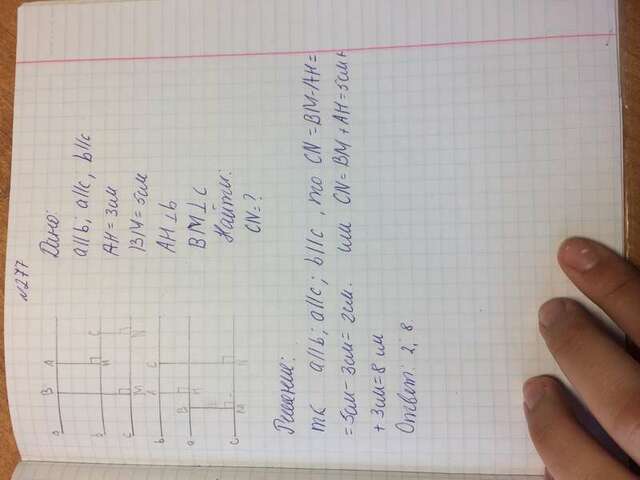 №277
Дано:
a||b; a||c; b||c
AH = 3см
BM = 5см
AH ⊥ b
BM ⊥ c
Найти:
CN = ?
a B A
b H C
c M N
b A C
a B H
c M N
Решение:
тк a||b; a||c; b||c, то CN = BM - AH =
= 5см - 3см = 2см. или CN = BM + AH = 5см +
+ 3см = 8 см
Ответ: 2; 8.